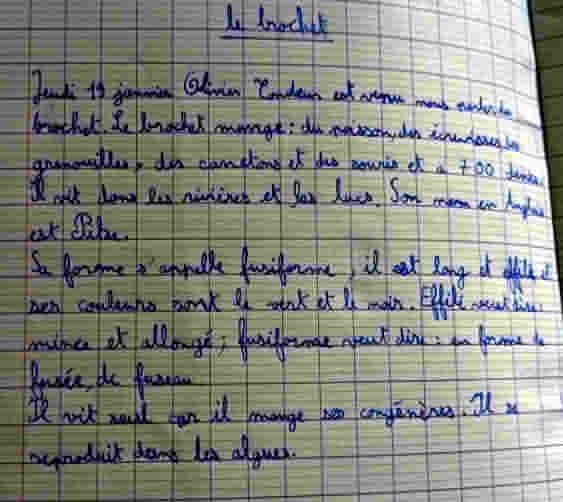 le brochet
Jeudi 19 janvier Olivier est venu nous parler du
brochet. Le brochet mange : du poisson, des écrevisses, des
grenouilles, des canetons et des souris et a 700 dents.
Il vit dans les rivières et les lacs. Son nom en Anglais
est Pike.
Sa forme s'appelle fusiforme, il est long et effilé et
ses couleurs sont le vert et le noir. Effilé veut dire :
mince et allongé ; fusiforme veut dire : en forme de
fusée, de fuseau.
Il vit seul car il mange ses congénères. Il se
reproduit dans les algues.